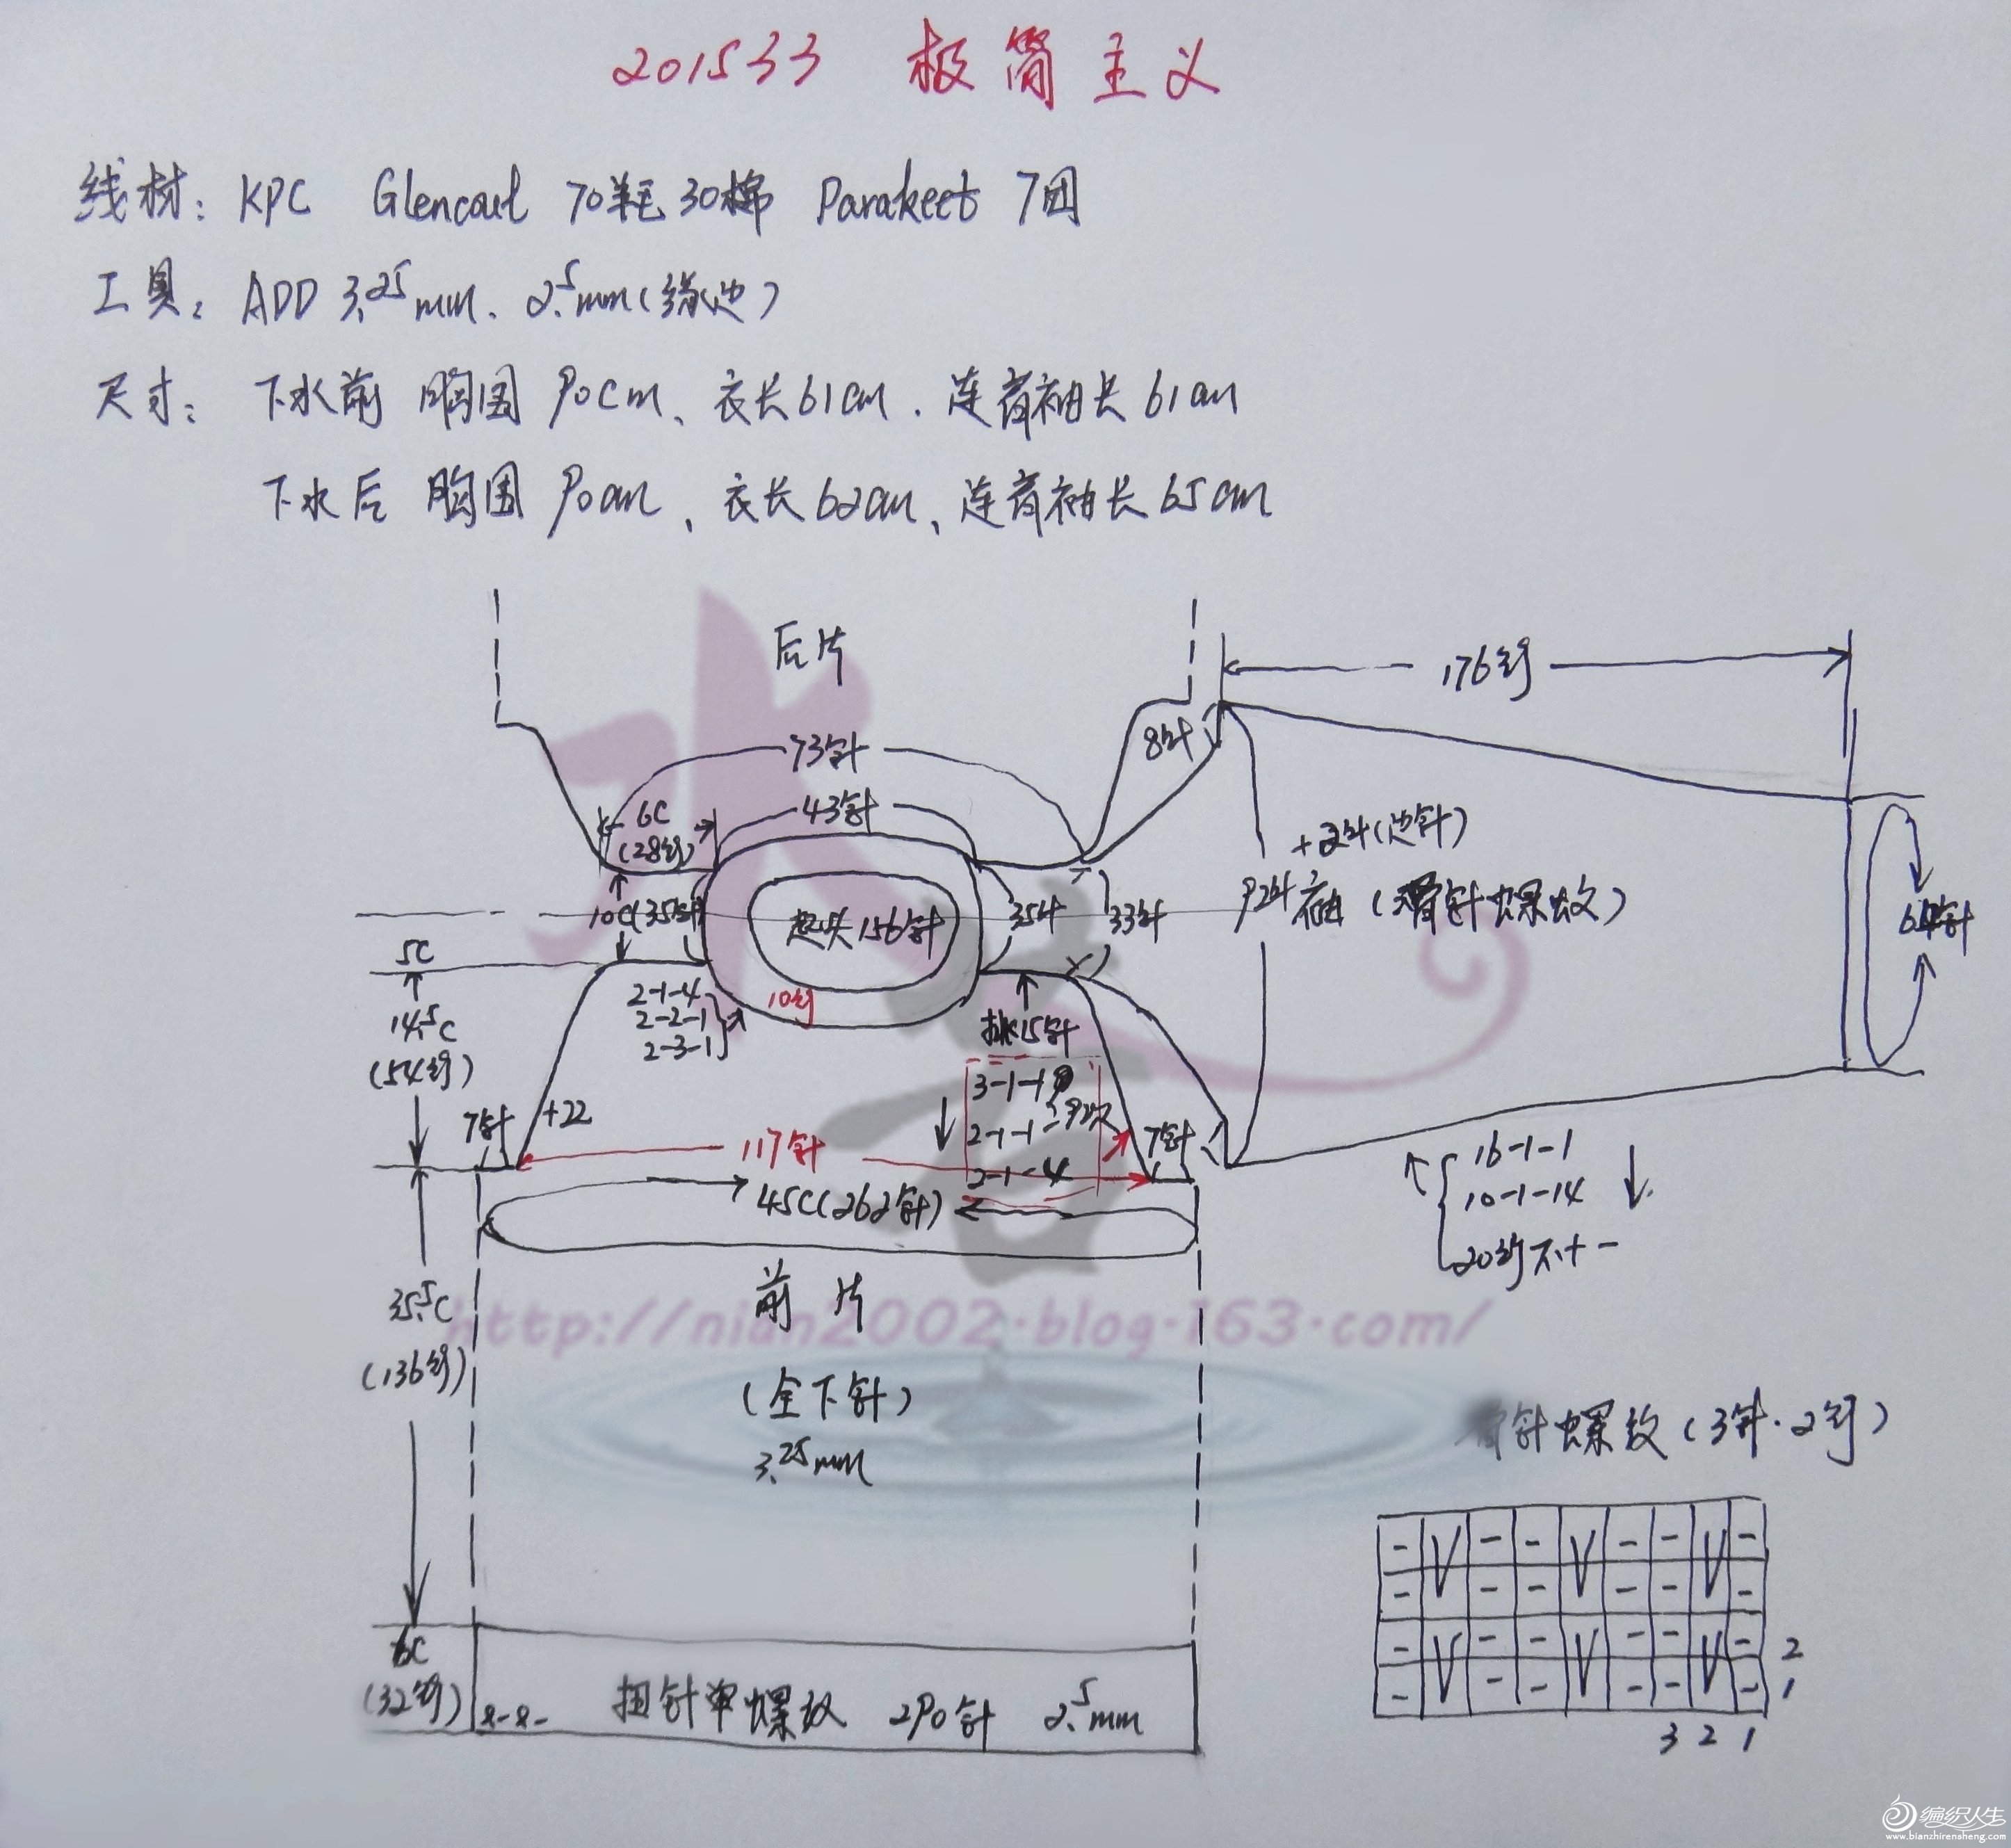 201533 极简主义
线材: KPC Glencoul 70羊毛30棉 Parakeet 7团
工具: ADD 3.25mm. 2.5mm(缘边)
尺寸: 下水前 胸围 90cm、衣长61cm. 连肩袖长61cm
下水后 胸围 90cm、衣长62cm、连肩袖长65cm
后片
176行
8针
73针
43针
6C
(28行)
+2针(边针)
92针 袖 (滑针螺纹)
10C(35针)
起头156针
35针
33针
64针
5C
14.5C
(54行)
2-1-4
2-2-1
2-3-1
10行
挑15针
3-1-1
2-1-1
2-1-4
7针
+22
117针
7针
45C(262针)
16-1-1
10-1-14
20行不+-
35.5C
(136行)
前片
http://nian2002.blog.163.com/
(全下针)
3.25mm
滑针螺纹(3针·2行)
- V - - V - - V -
- - - - - -
- V - - V - - V - 2
- - - - - - 1
3 2 1
6C
(32行)
扭针单螺纹 290针 2.5mm
编织人生
www.bianzhirensheng.com